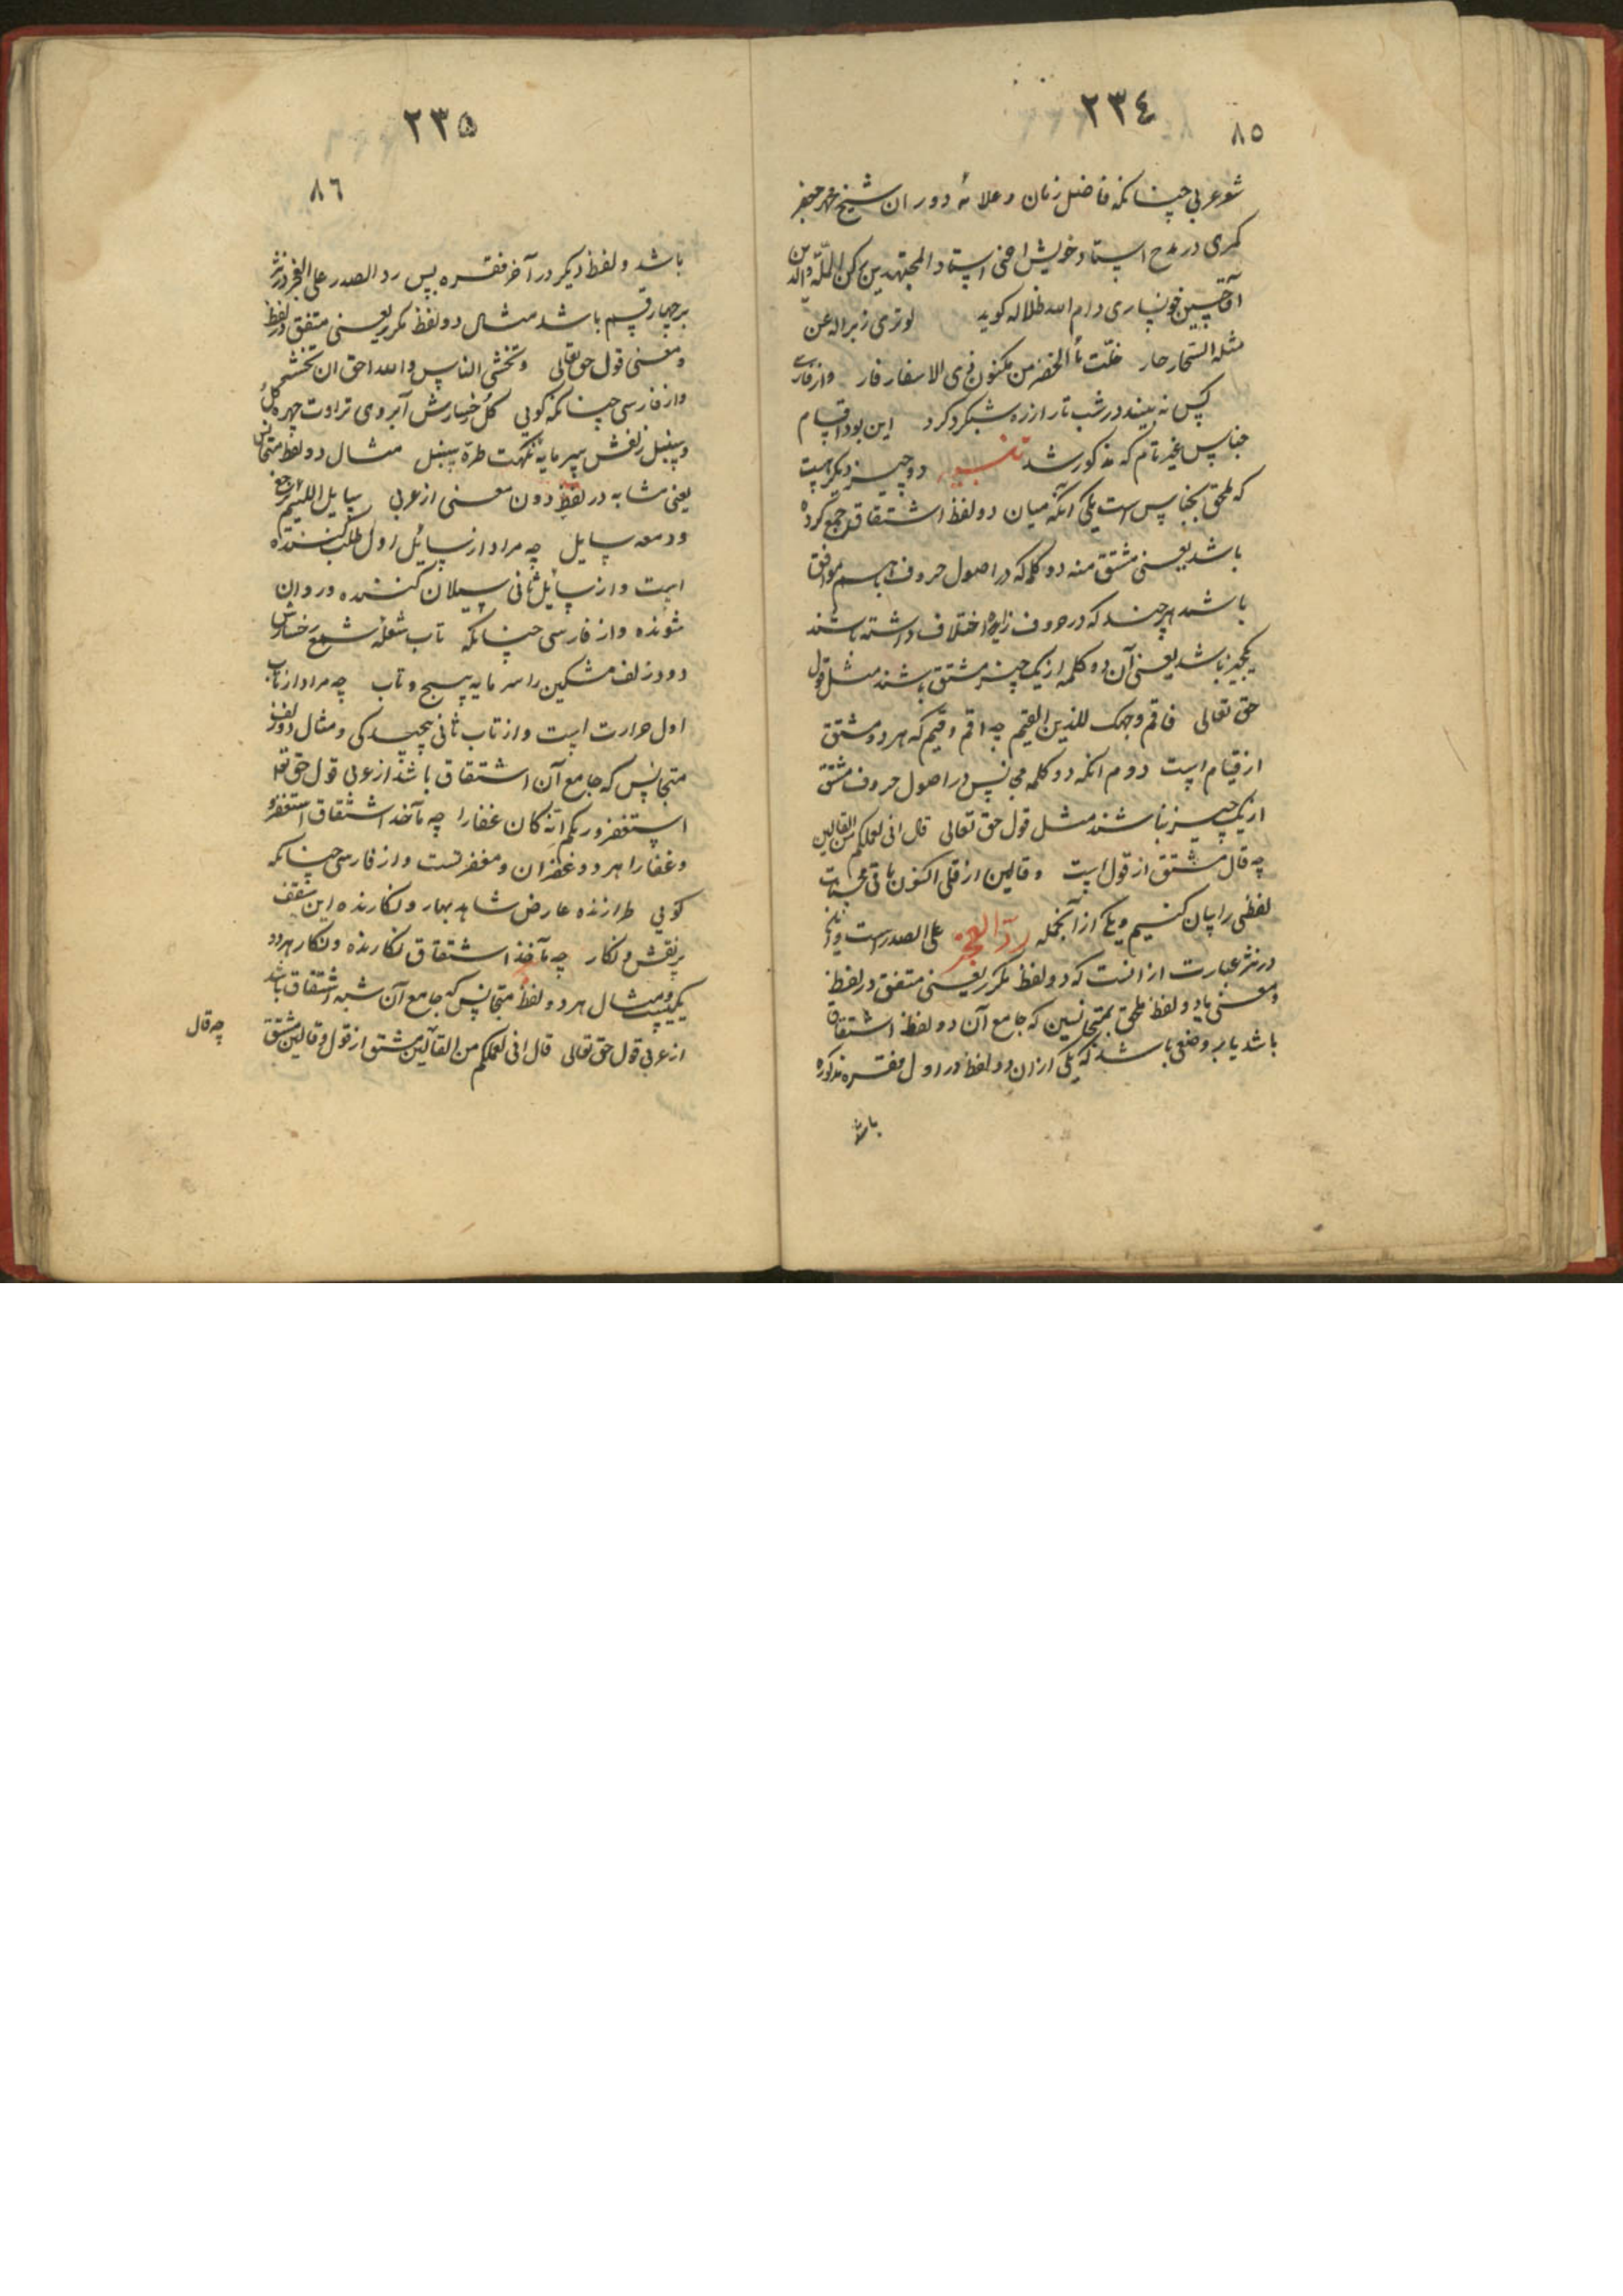 ٢٣٤
٨٥
شعر عربی چنانکه فاضل زمان و علامهٔ دوران شیخ محمد جعفر
کمری در مدح استاد خویش اعنی استاد المجتهدین رکن الملة والدین
آقا حسین خونساری دام الله ظلاله کوید لو تری زبر اله عن
مثله السحار حار خلت ماٴ الخضر من مکنون ذی الاسفار فار و از فارسی
کس نه بیند در شب تار از ره شبکرد کرد این بود اقسام
جناس غیر تام که مذکور شد تنبیه دو چیز دیکر هست
که ملحق بجناس است یکی آنکه میان دو لفظ اشتقاق جمع کرده
باشد یعنی مشتق منه دو کلمه که در اصول حروف باهم موافق
باشد هر چند که در حروف زایده اختلاف داشته باشند
یکچیز باشد یعنی آن دو کلمه از یک چیز مشتق باشند مثل قول
حق تعالی فاقم وجهک للدین القیم چه اقم و قیم که هر دو مشتق
از قیام است دوم انکه دو کلمه مجانس در اصول حروف مشتق
از یک چیز نباشند مثل قول حق تعالی قال انی لعملکم من القالین
چه قال مشتق از قول است و قالین از قلی اکنون باقی محسنات
لفظی را بیان کنیم و یکی از آنجمله ردّ العجز علی الصدر است و آن
در نثر عبارت از انست که دو لفظ مکرر یعنی متفق در لفظ
و معنی یا دو لفظ ملحق بمتجانسین که جامع آن دو لفظ اشتقاق
باشد یا بر وضعی باشد که یکی از ان دو لفظ در اول فقره مذکوره
باشد
٢٣٥
٨٦
باشد و لفظ دیکر در آخر فقره پس رد الصدر علی العجز در نثر
بر چهار قسم باشد مثال دو لفظ مکرر یعنی متفق در لفظ
و معنی قول حق تعالی وتخشی الناس والله احق ان تخشیه
و از فارسی چنانکه کویی کل رخسارش آبروی تراوت چهره کل
و سنبل زلفش سرمایه نکهت طرهٔ سنبل مثال دو لفظ متجانس
یعنی مشابه در لفظ دون معنی از عربی سایل اللئیم یرجع
ودمعه سایل چه مراد از سائل اول طلب کننده
است و از سائل ثانی سیلان کننده و روان
شونده و از فارسی چنانکه تاب شعلهٔ شمع رخسارش
دود زلف مشکین را سرمایه پیچ و تاب چه مراد از تاب
اول حرارت است و از تاب ثانی پیچیدکی و مثال دو لفظ
متجانس که جامع آن اشتقاق باشد از عربی قول حق تعالی
استغفروا ربکم انّه کان غفارا چه مآخذ اشتقاق استغفروا
و غفارا هر دو غفران و مغفرتست و از فارسی چنانکه
کویی طرازنده عارض شاهد بهار و نکارنده این سقف
پر نقش و نکار چه مآخذ اشتقاق نکارنده و نکار هر دو
یکیست و مثال هر دو لفظ متجانس که جامع آن شبه اشتقاق باشد
از عربی قول حق تعالی قال انی لعملکم من القآلین مشتق از قول و قالین مشتق
چه قال